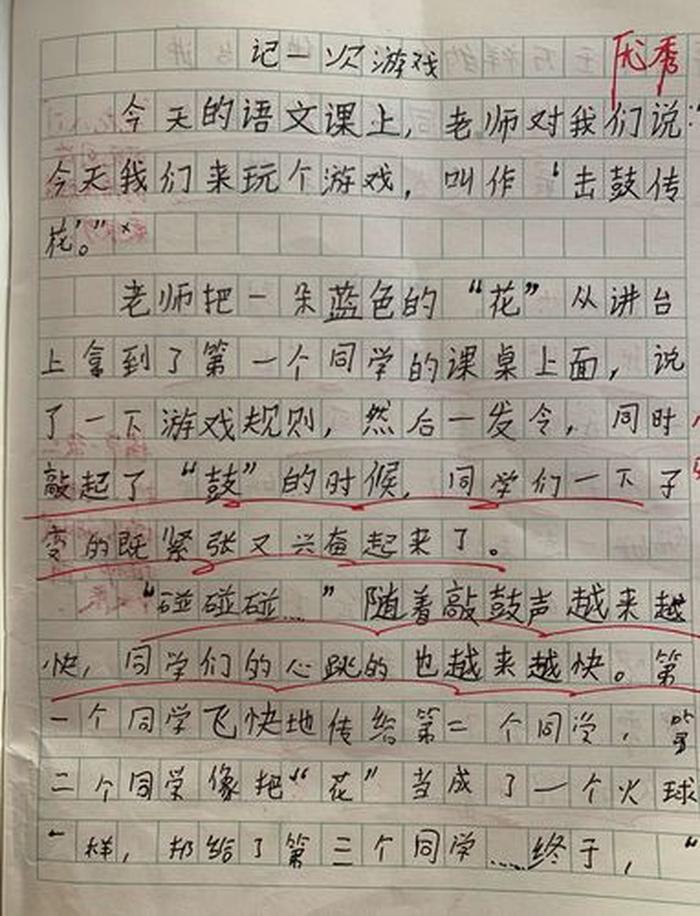 记一次游戏
优秀
今天的语文课上，老师对我们说：“
今天我们来玩个游戏，叫作‘击鼓传
花’。”
老师把一朵蓝色的“花”从讲台
上拿到了第一个同学的课桌上面，说
了一下游戏规则，然后一发令，同时
敲起了“鼓”的时候，同学们一下子
变的既紧张又兴奋起来了。
“碰碰碰……”随着敲鼓声越来越
快，同学们的心跳的也越来越快。第
一个同学飞快地传给第二个同学，第
二个同学像把“花”当成了一个火球
一样，扔给了第三个同学……终于，“